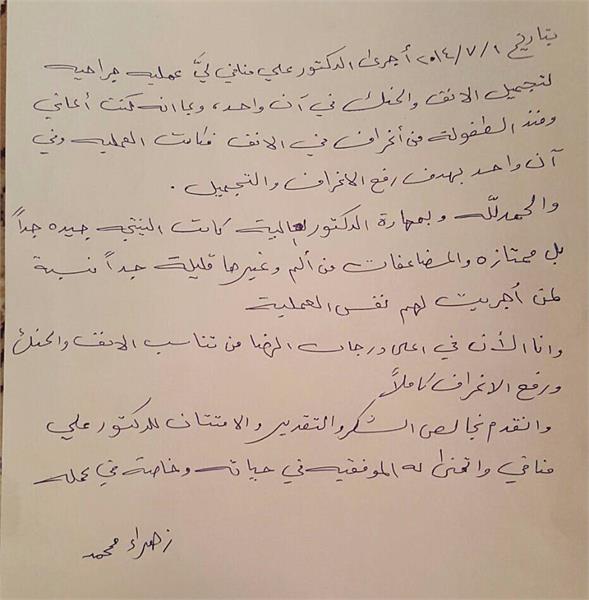 بتاريخ ٢٠١٤/٧/١ أجرى الدكتور علي منافي ليّ عمليه جراحيه
لتجميل الانف والحنك في آن واحد، وبما انه كنت أعاني
ومنذ الطفولة من أنحراف في الانف فكانت العمليه وفي
آن واحد بهدف رفع الانحراف والتجميل .
والحمدلله وبمهارة الدكتور العالية كانت النتيجه جيده جداً
بل ممتازه والمضاعفات من ألم وغيرها قليلة جداً نسبة
لمن أجريت لهم نفس العملية
وانا الأن في اعلى درجات الرضا من تناسب الانف والحنك
ورفع الانحراف كاملاً
واتقدم بخالص الشكر والتقدير والامتنان للدكتور علي
منافي واتمنى له الموفقيه في حياته وخاصة في عمله
زهراء محمد